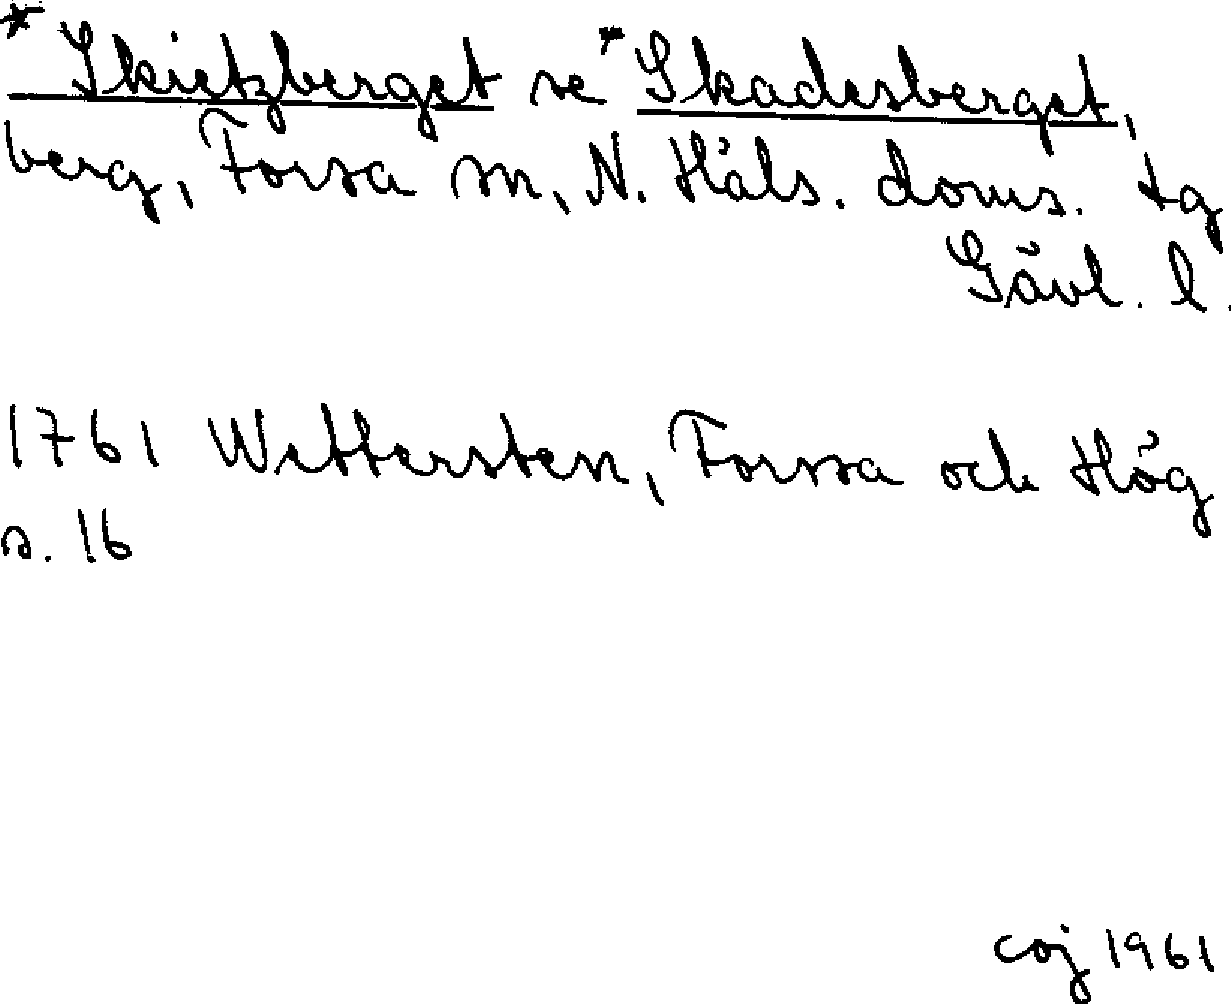 *Skietzberget se *Skadesberget,
berg, Forsa sn, N. Häls. doms. tg
Gävl. l.
1761 Wettersten, Forssa och Hög
s. 16
coj 1961